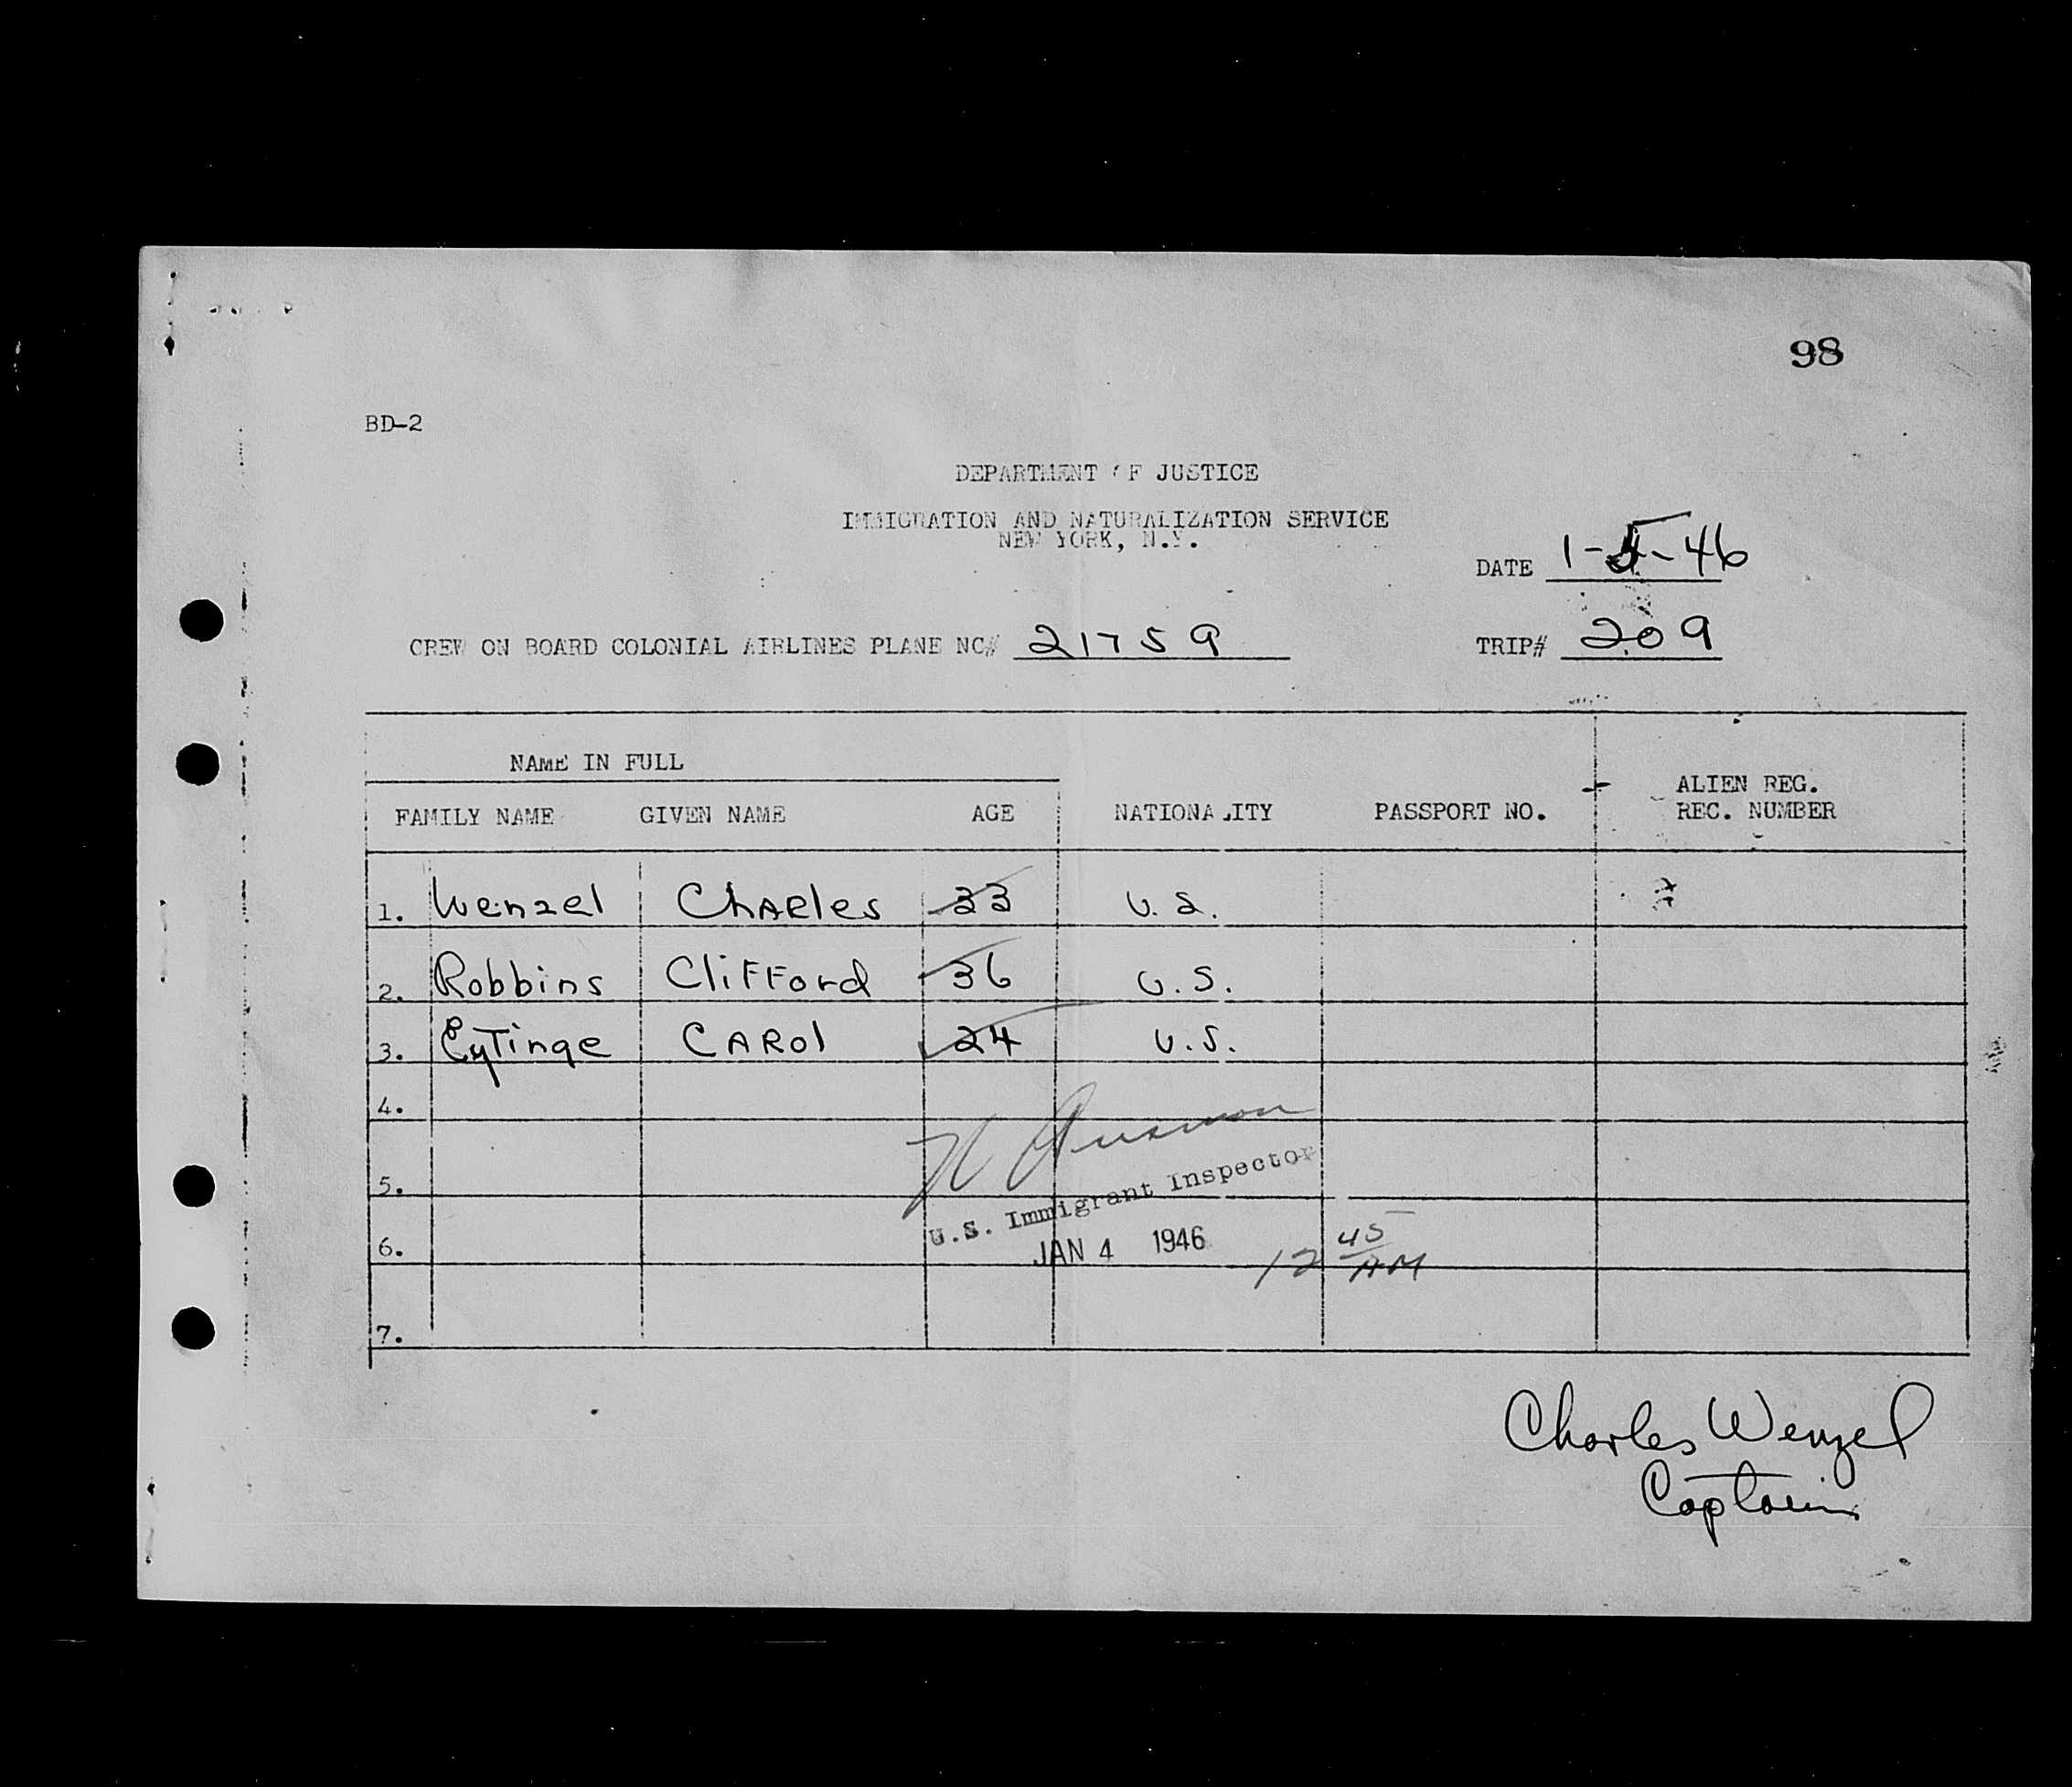 98
BD-2
DEPARTMENT OF JUSTICE
IMMIGRATION AND NATURALIZATION SERVICE
NEW YORK, N.Y.
DATE 1-5-46
CREW ON BOARD COLONIAL AIRLINES PLANE NC# 21759 TRIP# 209
NAME IN FULL
FAMILY NAME GIVEN NAME AGE NATIONALITY PASSPORT NO. ALIEN REG. REC. NUMBER
1. Wenzel Charles 33 U.S.
2. Robbins Clifford 36 U.S.
3. Eytinge Carol 24 U.S.
4.
5.
U.S. Immigrant Inspector
6. JAN 4 1946 12 45 AM
7.
Charles Wenzel
Captain